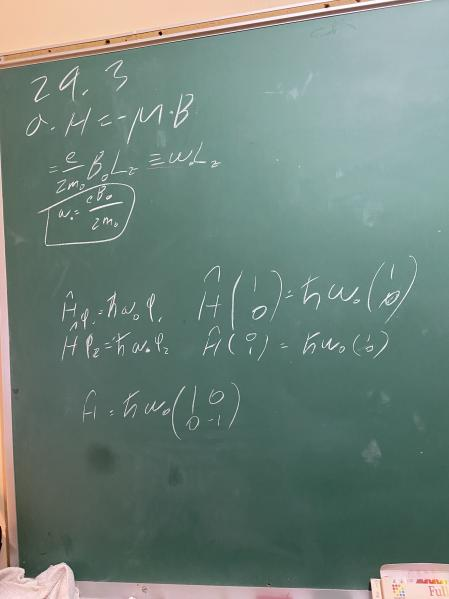 29.3
a. H = -μ·B
= e/2m₀ B₀ L_z ≡ ω₀L_z
ω₀ = eB₀/2m₀
Ĥφ₁ = ħω₀φ₁ Ĥ(1 0) = ħω₀(1 0)
Ĥφ₂ = ħω₀φ₂ Ĥ(0 1) = ħω₀(1 0)
Ĥ = ħω₀(1 0 0 -1)
Full